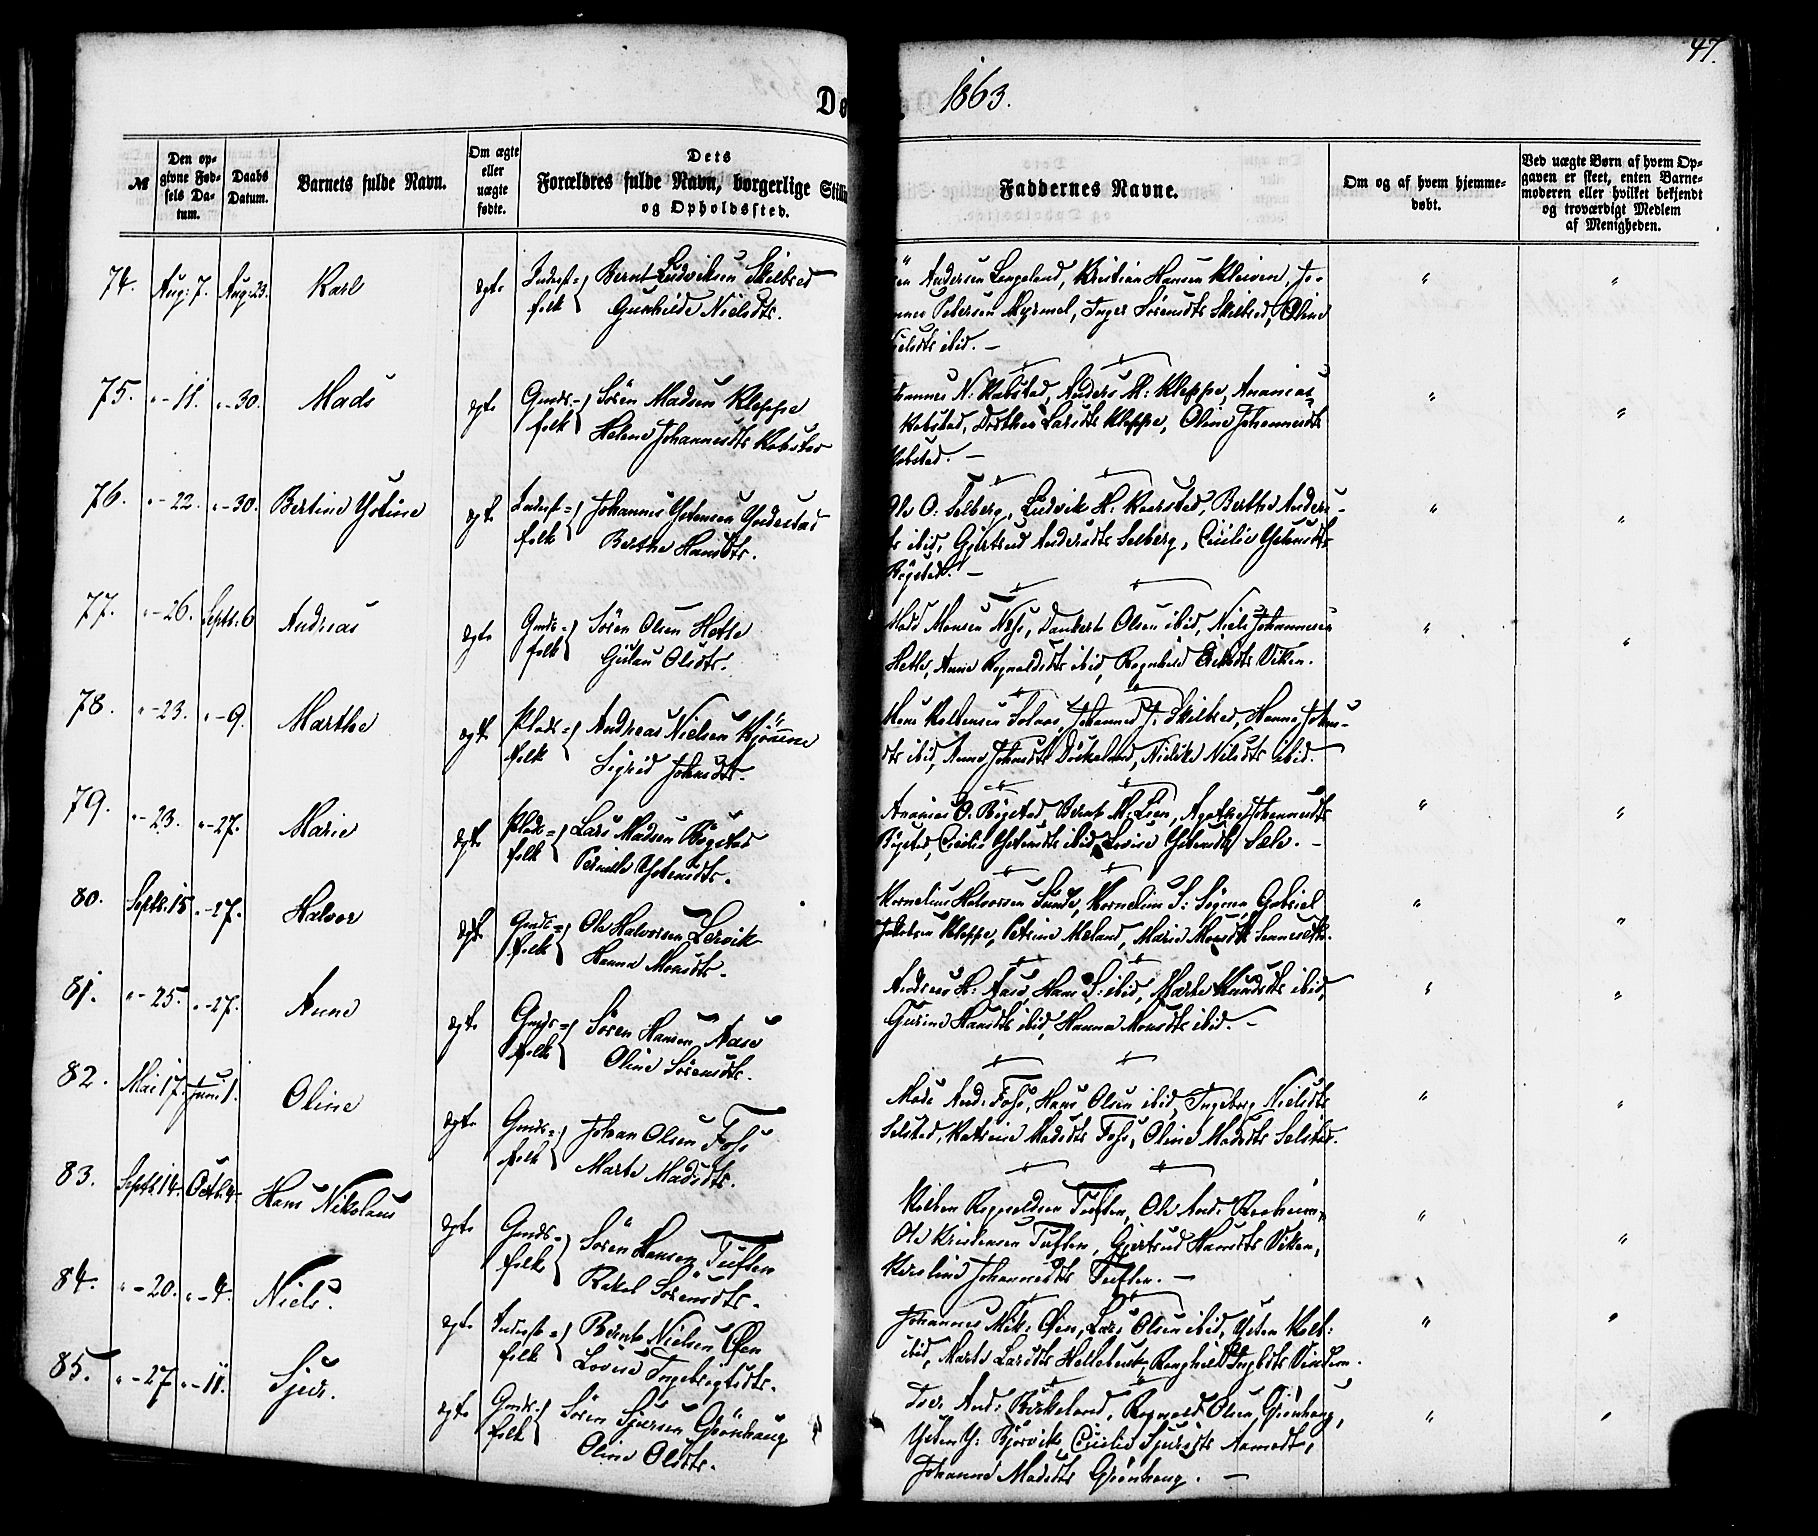 47.
Dø
1863.
№
Den op-
givne Fød-
sels Da-
tum.
Daabs
Datum.
Barnets fulde Navn.
Om ægte
eller
uægte
fødte.
Dets
Forældres fulde Navn, borgerlige Stilli
og Opholdssted.
Faddernes Navne.
Om og af hvem hjemme-
døbt.
Ved uægte Børn af hvem Op-
gaven er skeet, enten Barne-
moderen eller hvilket bekjendt
og troværdigt Medlem
af Menigheden.
74. Aug: 7. Aug: 23. Karl ægte Inderst= Bernt Ludviksen Skilbred
folk Gunhilde Nielsdtr.
Andersen Langeland, Kristian Hansen Kleiven, Jo- " "
Petersen Myrmel, Inger Sörensdtr Skilbred, Oline
ibid. -
75. " - 11. " - 30. Mads ægte Gmds- Sören Madsen Kleppe
folk Helene Johannesdtr Kobstad
N: Kobstad, Anders M: Kleppe, Ananias " "
Kobstad, Dorthea Larsdtr Kleppe, Oline Johannesdtr
Kobstad. -
76. " - 22. " - 30. Bertine Ystine ægte Inderst= Johannes Ystensen Yndestad
folk Berthe Hansdtr.
Ole O. Solberg, Ludvik H: Kvarsted, Berthe Anders- " "
ibid, Gjertrud Andersdtr Solberg, Cicilie Ystensdtr
Bögstad. -
77. " - 26. Septb. 6 Andreas ægte Gmds- Sören Olsen Hetle
folk Olsdtr.
Mads Monsen Næs, Dankert Olsen ibid, Niels Johannesen " "
Hetle, Anne Rognaldsdtr ibid, Ragnhild Viken.
78. " - 23. " - 9. Marthe ægte Plads= Andreas Nielsen
folk Sigrid Johnsdtr.
Johannes J. Skilbred, Hanna Johns-
dtr ibid, Anne Johnsdtr Döskeland, Nielsdtr ibid.
79. " - 23. " - 27. Marie ægte Plads= Lars Madsen Bögstad
folk Pernille Ystensdtr.
Ananias O. Bögstad, Bernt M. Lien, Agathe Johannesdtr " "
Bögstad, Cicilie Ystensdtr ibid, Lovise Ystensdtr Sæle. -
80. Septb. 15 " - 27. Halvor ægte Gmds= Ole Halvorsen Lervik
folk Hanna Monsdtr.
Kornelius Halvorsen Sunde, Kornelius S: Gabriel " "
Jakobsen Kleppe, Petrine Mæland, Marie Monsdtr
81. " - 25. " - 27. Anne ægte Gmds= Sören Hansen Aase
folk Oline Sörensdtr.
Andreas H: Aase, Hans S: ibid, Marte Hansdtr ibid, " "
Gurine Hansdtr ibid, Hanna Monsdtr ibid. -
82. Mai 17. Juni 1. Oline ægte Gmds= Johan Olsen Foss
folk Marte Madsdtr.
Mads And: Foss, Hans Olsen ibid, Ingeborg Nielsdtr " "
Selstad, Katrine Madsdtr Foss, Oline Madsdtr Selstad.
83. Septb. 14. Octb. 4. Hans Nikolaus ægte Gmds= Sören Hansen Tuften
folk Rakel Sörensdtr.
Kolben Rognaldsen Tuften, Ole And: " "
Ole Kristensen Tuften, Gjertrud Hansdtr Viken,
Karoline Johannesdtr Tuften. -
84. " - 20. " - 4. Niels. ægte Inderst= Bernt Nielsen Öen
folk Lovise Ingebrigtsdtr.
Johannes Mik: Öen, Lars Olsen ibid, Ysten Kolb: " "
ibid, Marte Larsdtr Hellebust, Ragnhild Ingbdtr
85. " - 27. " - 11. Sjur. ægte Gmds- Sören Sjursen Grönhaug
folk Oline Olsdtr.
Tore And: Birkeland, Rognald Olsen Grönhaug, " "
Ysten Y: Björvik, Cicilie Sjursdtr Aamodt,
Johanna Madsdtr Grönhaug. -